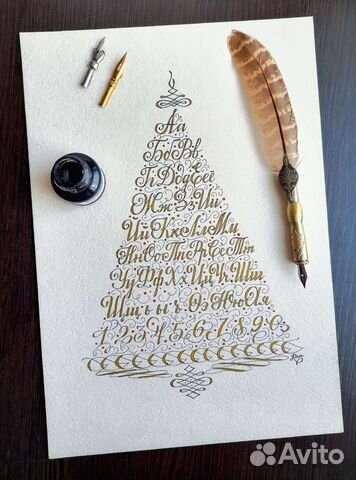 Аа
Бб Вв
Гг Дд Ее Ёё
Жж Зз Ии
Йй Кк Лл Мм
Нн Оо Пп Рр Сс Тт
Уу Фф Хх Цц Чч Шш
Щщ ъ ы ь Ээ Юю Яя
1 2 3 4 5 6 7 8 9 0
Avito